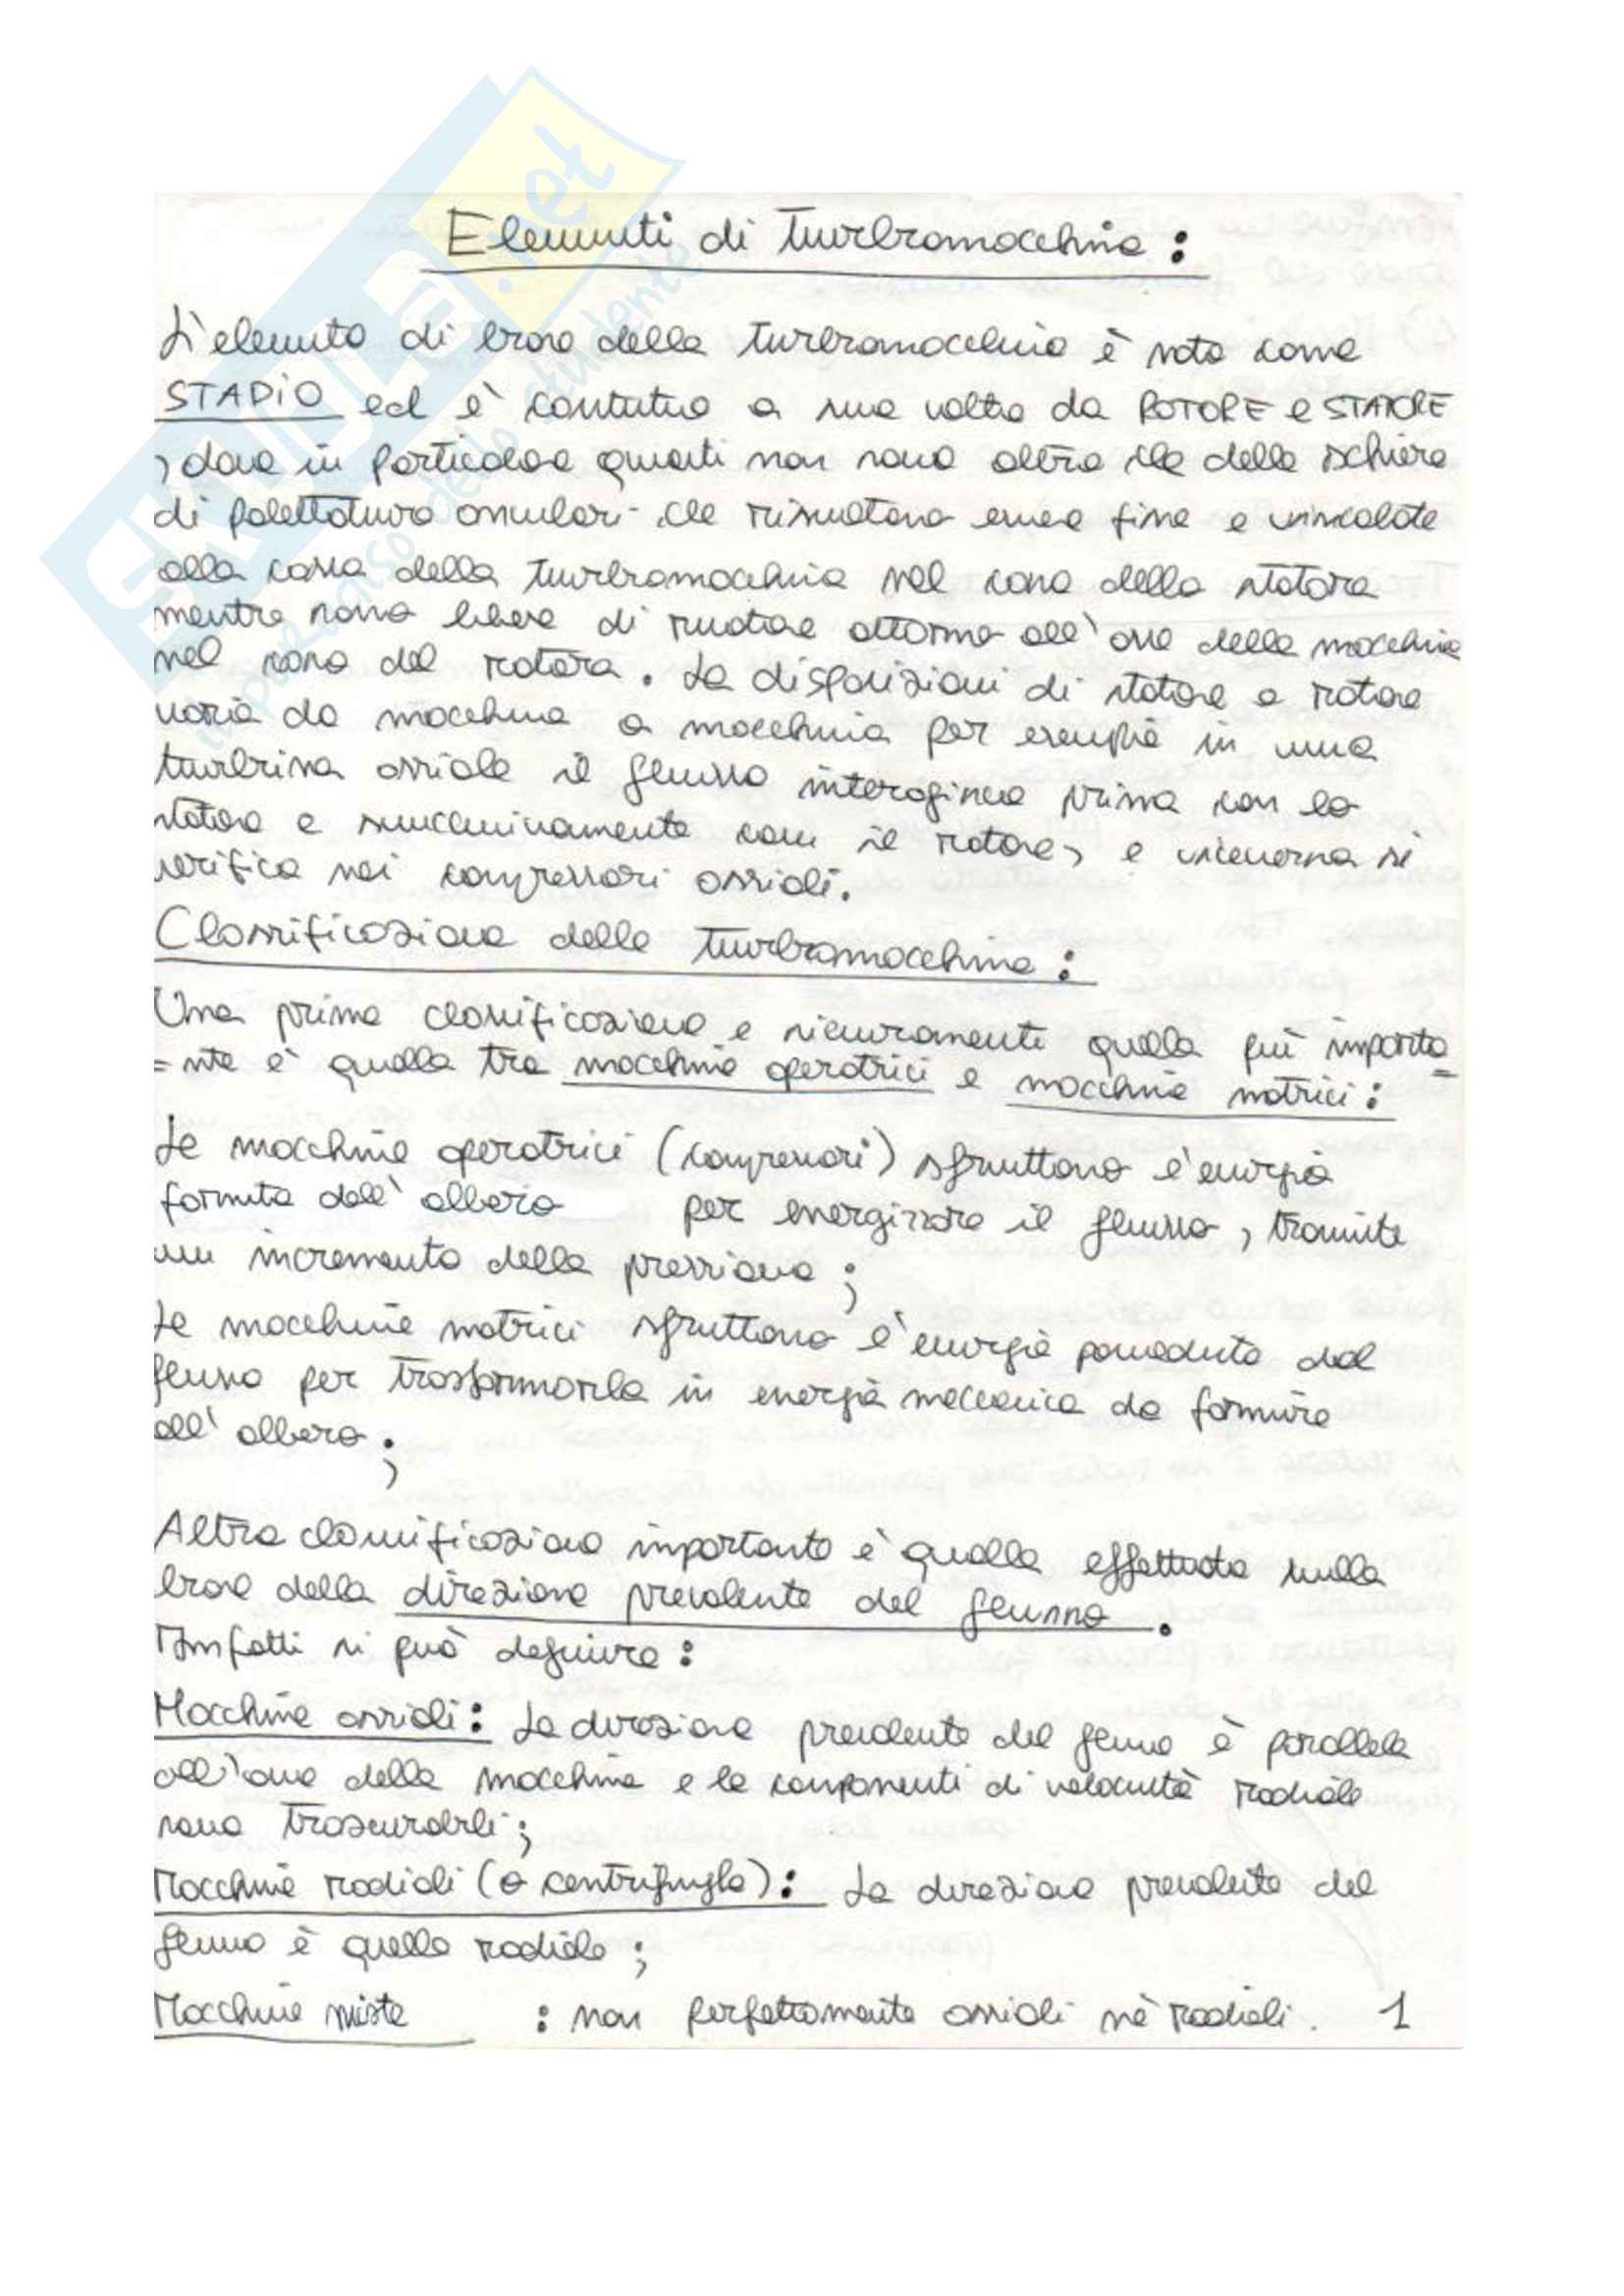 SKUOLA.net
il paradiso dello studente
Elementi di turbomacchine :
L'elemento di base delle turbomacchine è noto come
STADIO ed è costituito a sua volta da ROTORE e STATORE
, dove in particolare questi non sono altro che delle schiere
di palettatura anulari che risultano essere fisse e vincolate
alla cassa della turbomacchina nel caso dello statore
mentre sono libere di ruotare attorno all'asse della macchina
nel caso del rotore. La disposizioni di statore e rotore
varia da macchina a macchina per esempio in una
turbina assiale il flusso interagisce prima con lo
statore e successivamente con il rotore, e viceversa si
verifica nei compressori assiali.
Classificazione delle turbomacchine :
Una prima classificazione e sicuramente quella più importa=
=nte è quella tra macchine operatrici e macchine motrici :
Le macchine operatrici (compressori) sfruttano l'energia
fornita dall'albero per energizzare il flusso, tramite
un incremento della pressione ;
Le macchine motrici sfruttano l'energia posseduta dal
flusso per trasformarla in energia meccanica da fornire
all'albero ;
Altra classificazione importante è quella effettuata sulla
base della direzione prevalente del flusso .
Infatti si può definire :
Macchine assiali : La direzione prevalente del flusso è parallela
all'asse della macchina e le componenti di velocità radiale
sono trascurabili ;
Macchine radiali (o centrifughe) : La direzione prevalente del
flusso è quella radiale ;
Macchine miste : non perfettamente assiali nè radiali. 1